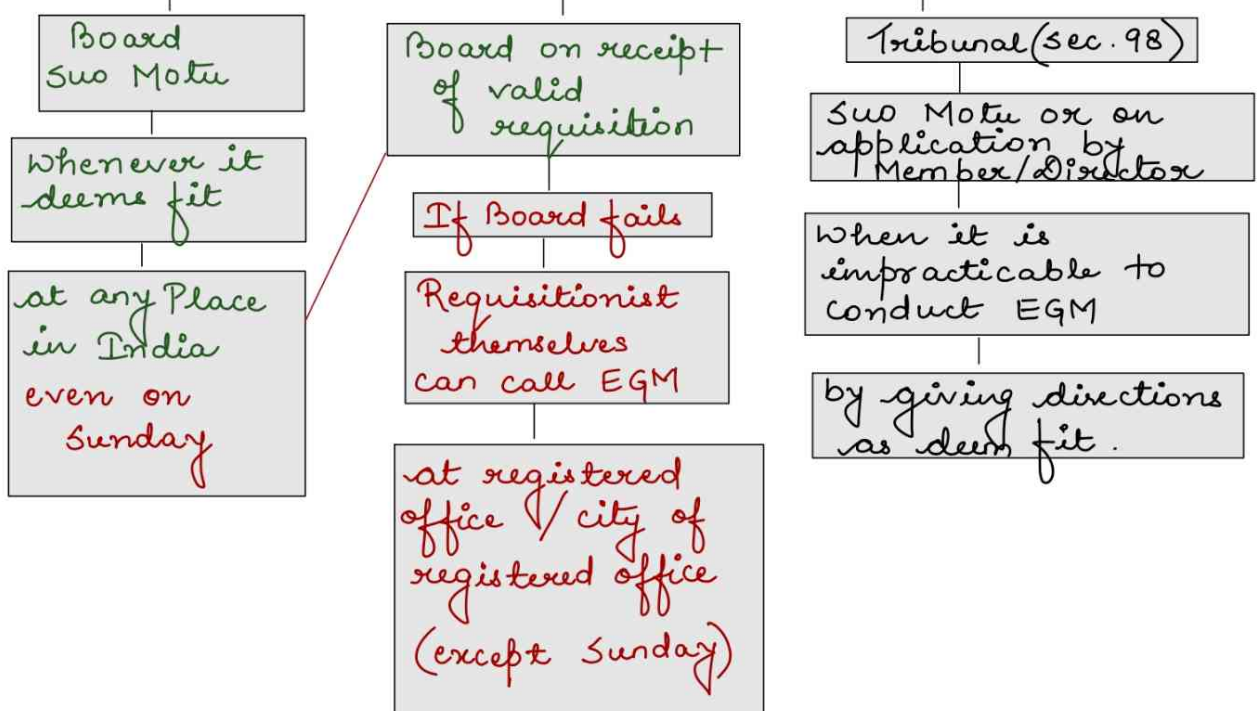 Board
suo Motu
whenever it
deems fit
at any Place
in India
even on
Sunday
Board on receipt
of valid
requisition
If Board fails
Requisitionist
themselves
can call EGM
at registered
office / city of
registered office
(except Sunday)
Tribunal (sec. 98)
suo Motu or on
application by
Member/Director
when it is
impracticable to
conduct EGM
by giving directions
as deem fit.